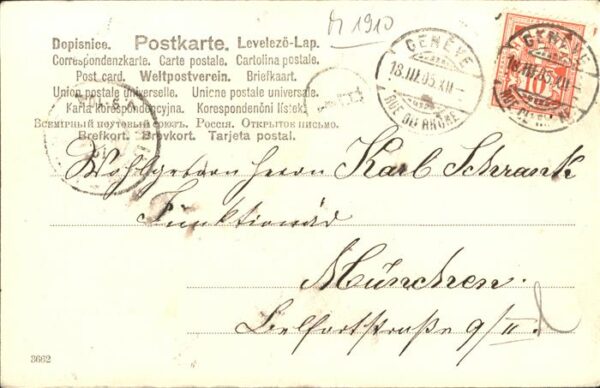 M 1910
Dopisnice. Postkarte. Levelező-Lap.
Correspondenzkarte. Carte postale. Cartolina postale.
Post card. Weltpostverein. Briefkaart.
Union postale universelle. Unione postale universale.
Karta korespondencyjna. Korespondenční lístek.
Всемірный почтовый союзъ. Россія. Открытое письмо.
Brefkort. Brevkort. Tarjeta postal.
GENÈVE
18.III.05.XII
RUE DU RHÔNE
GENÈVE
18.III.05.XII
10
Wohlgeboren Herrn Karl Schrank
Funktionär
München.
Belfortstraße 9/II.
3662